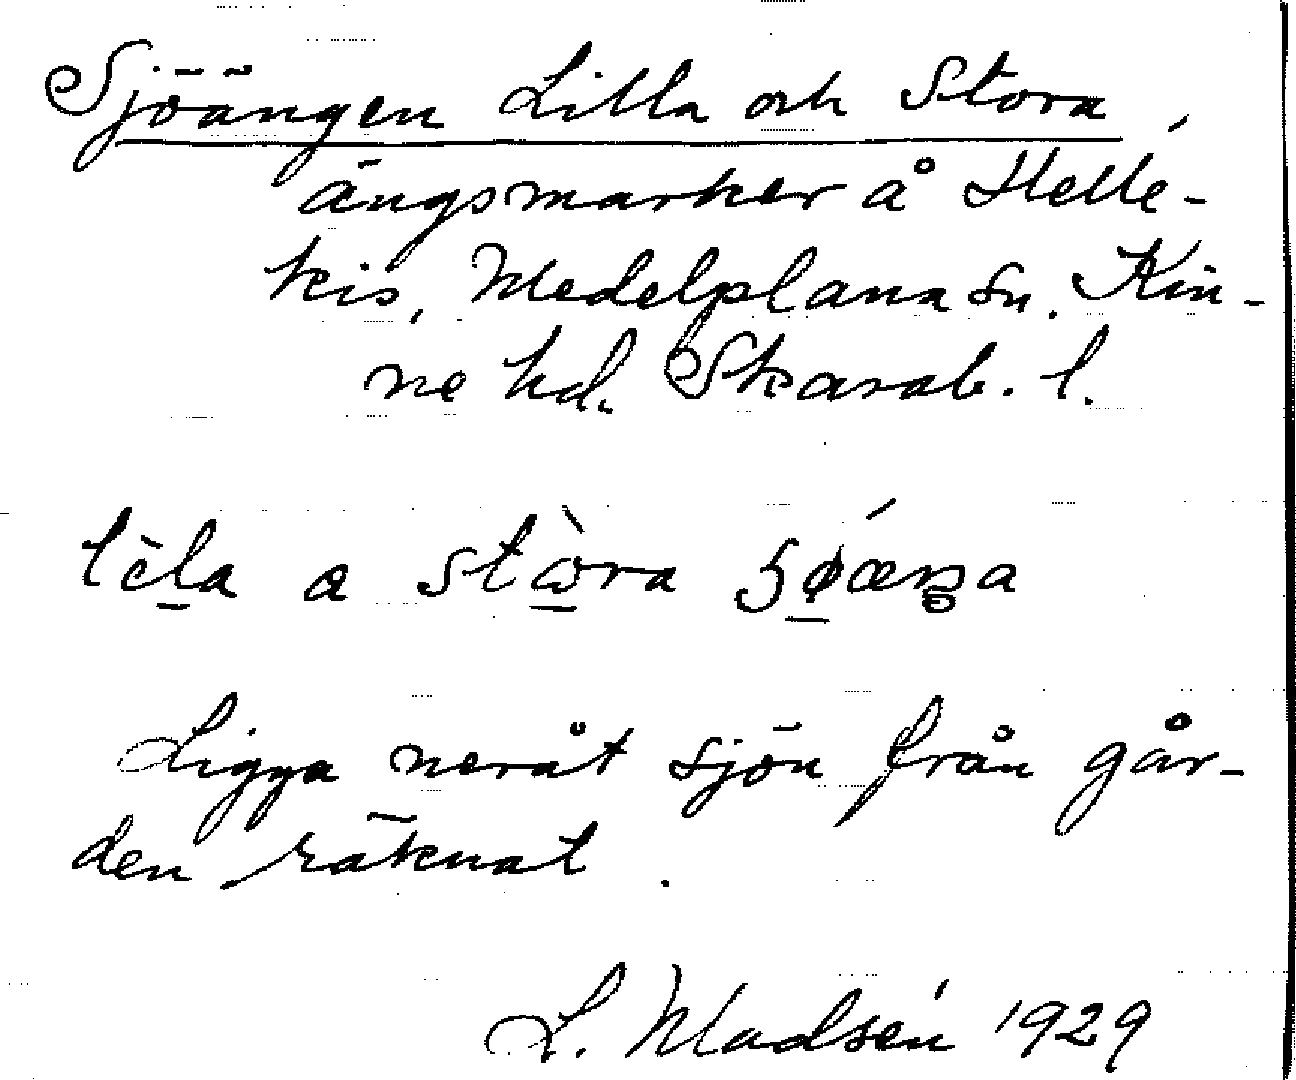 Sjöängen Lilla och Stora,
ängsmarker å Helle-
kis, Medelplana sn. Kin-
ne hd. Skarab. l.
Ligga neråt sjön från går-
den räknat.
L. Madsén 1929